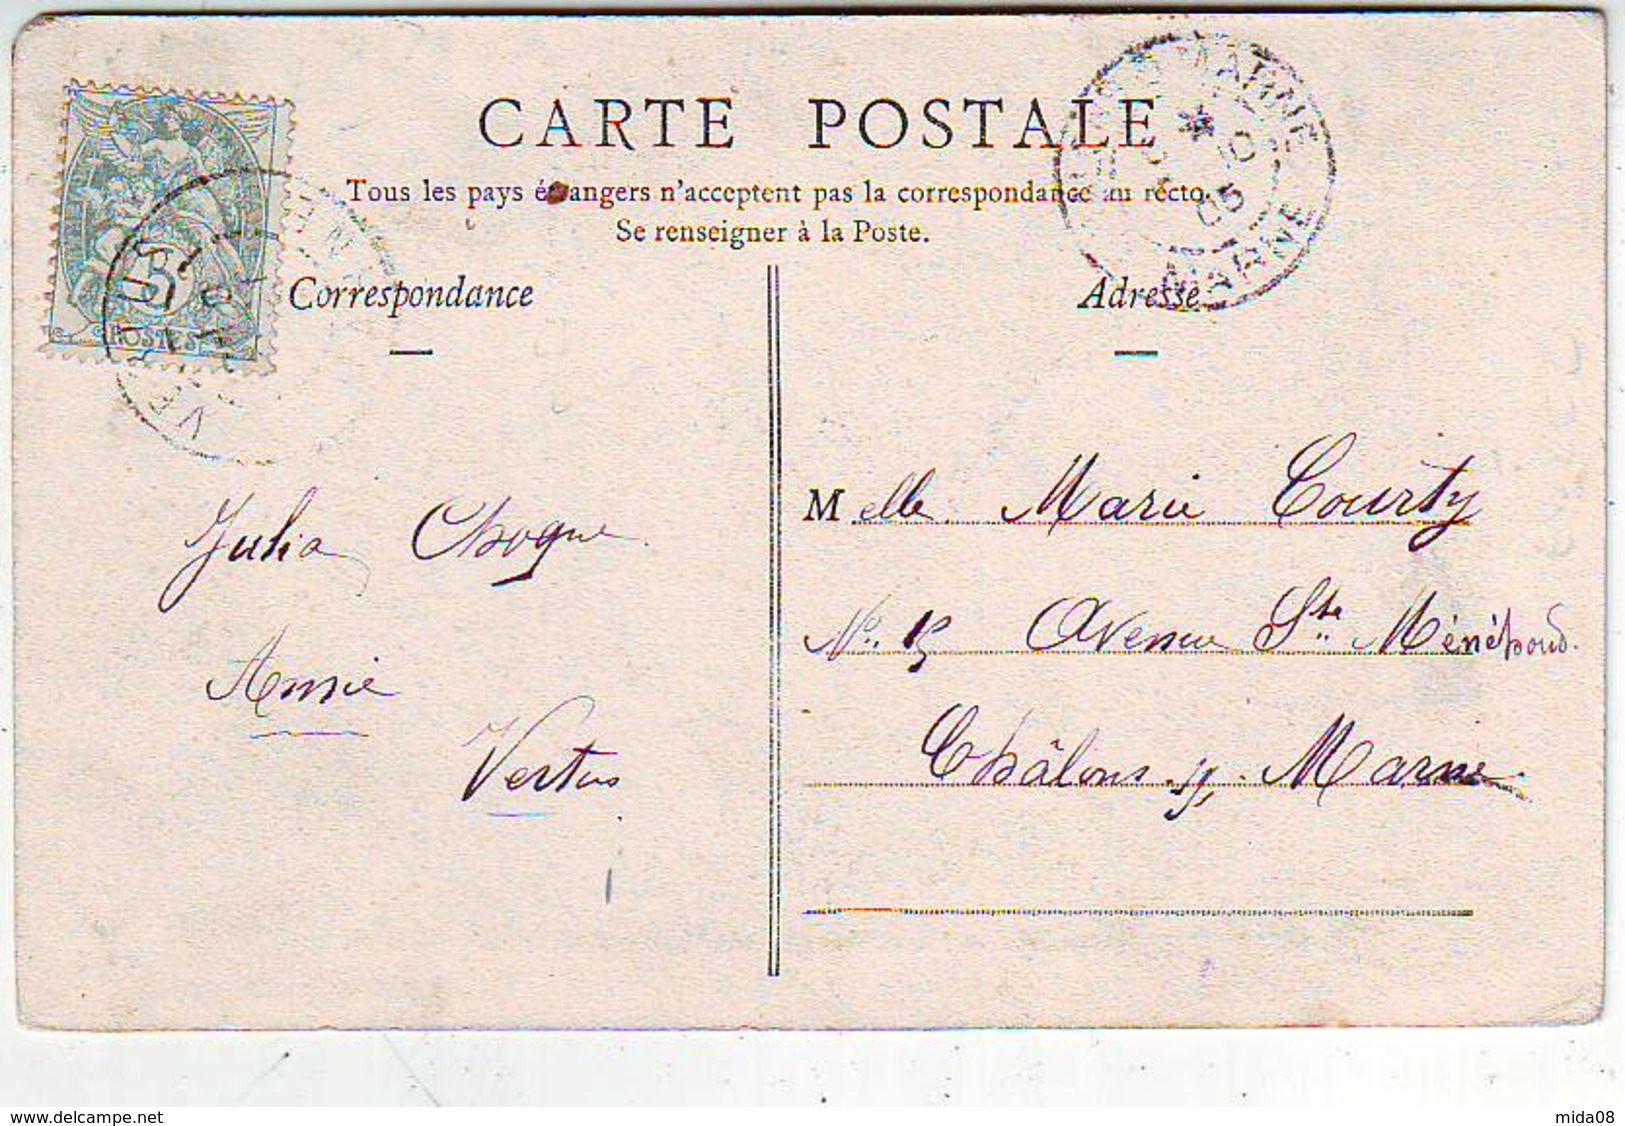 CARTE POSTALE
Tous les pays étrangers n'acceptent pas la correspondance au recto.
Se renseigner à la Poste.
Correspondance
Adresse
5
POSTES
VERTUS
MARNE
* 10 05
MARNE
Julia Choque
Amie
Vertus
Melle Marie Courty
No. 15 Avenue Ste Ménéhould.
Châlons s/ Marne
www.delcampe.net
mida08